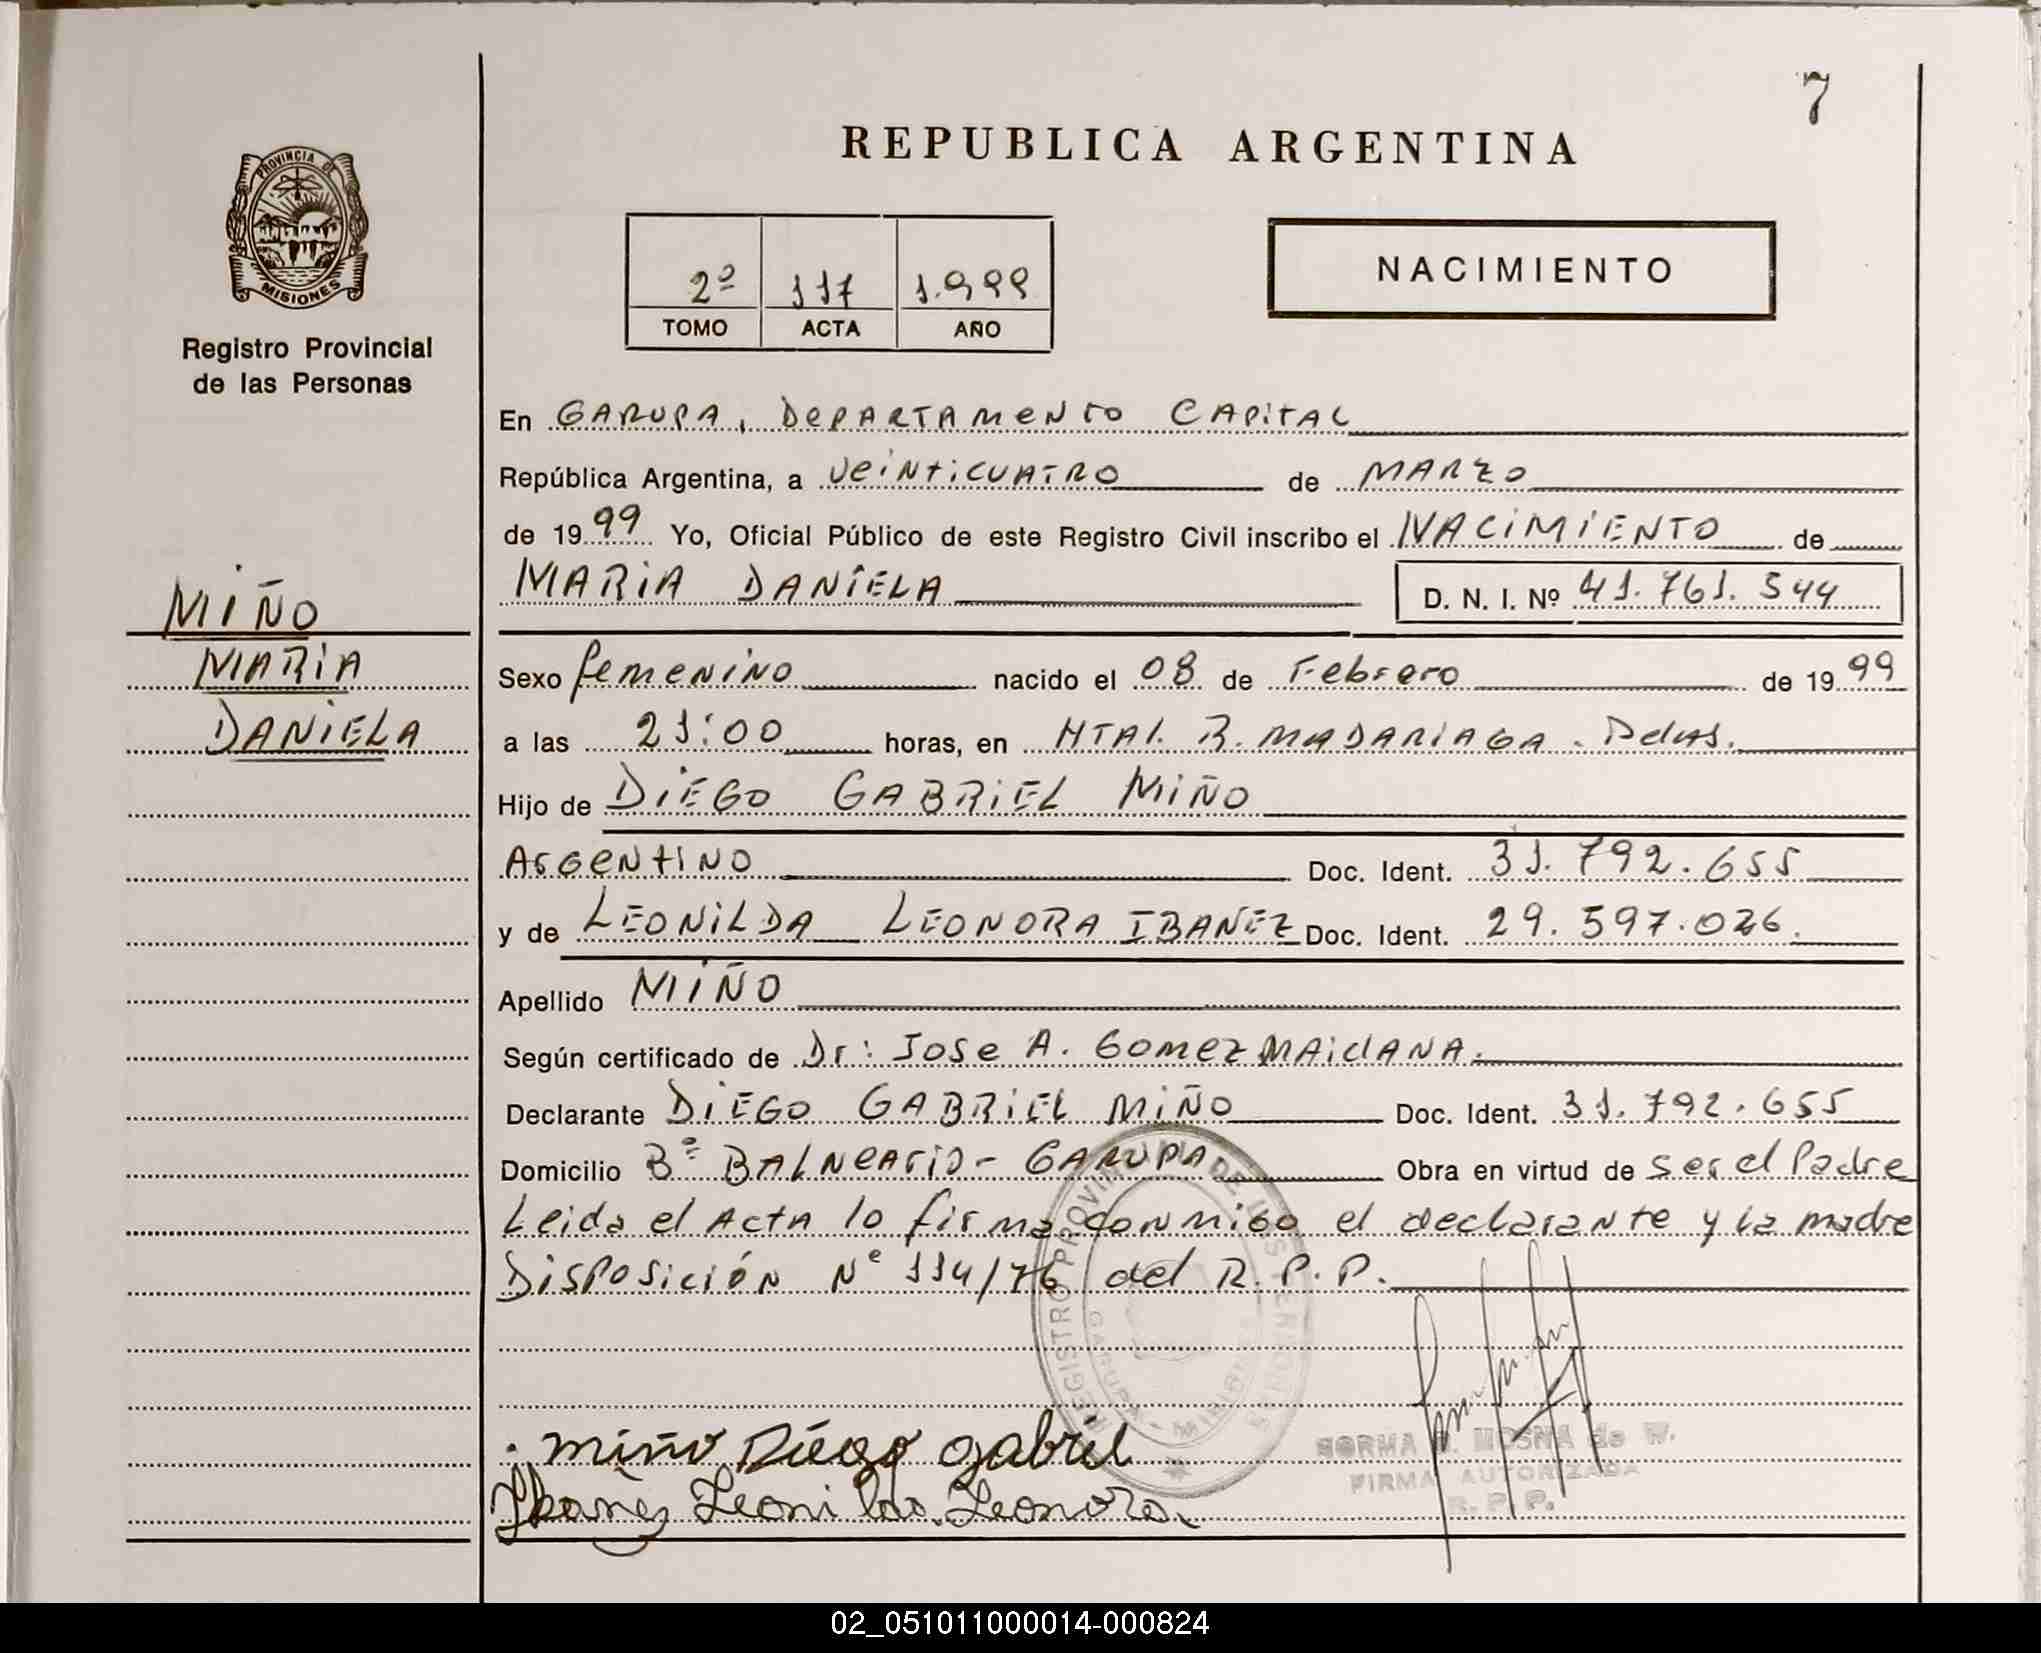 7
REPUBLICA ARGENTINA
PROVINCIA DE
MISIONES
Registro Provincial
de las Personas
2º 117 1.999
TOMO ACTA AÑO
NACIMIENTO
En GARUPA, DEPARTAMENTO CAPITAL
República Argentina, a VEINTICUATRO de MARZO
de 1999 Yo, Oficial Público de este Registro Civil inscribo el NACIMIENTO de
MARIA DANIELA D. N. I. Nº 41.761.544
MIÑO
MARIA
DANIELA
Sexo femenino nacido el 08 de Febrero de 1999
a las 21:00 horas, en HTAl. R. MADARIAGA. Pdas.
Hijo de DIEGO GABRIEL MIÑO
ArgENtINO Doc. Ident. 31.792.655
y de LEONILDA LEONORA IBAÑEZ Doc. Ident. 29.597.026.
Apellido MIÑO
Según certificado de Dr: JOSe A. GOMEZ MAidANA.
Declarante DIEGO GABRIEL MIÑO Doc. Ident. 31.792.655
Domicilio Bº BALNeArio - GARUPA Obra en virtud de ser el Padre
Leida el Acta lo firma conmigo el declarante y la madre
Disposición Nº 114/76 del R.P.P.
REGISTRO PROVINCIAL DE LAS PERSONAS
GARUPA - MISIONES
miño Diego gabriel
Ibañez Leonilda Leonora
NORMA MOSNA de W.
FIRMA AUTORIZADA
R. P. P.
02_051011000014-000824